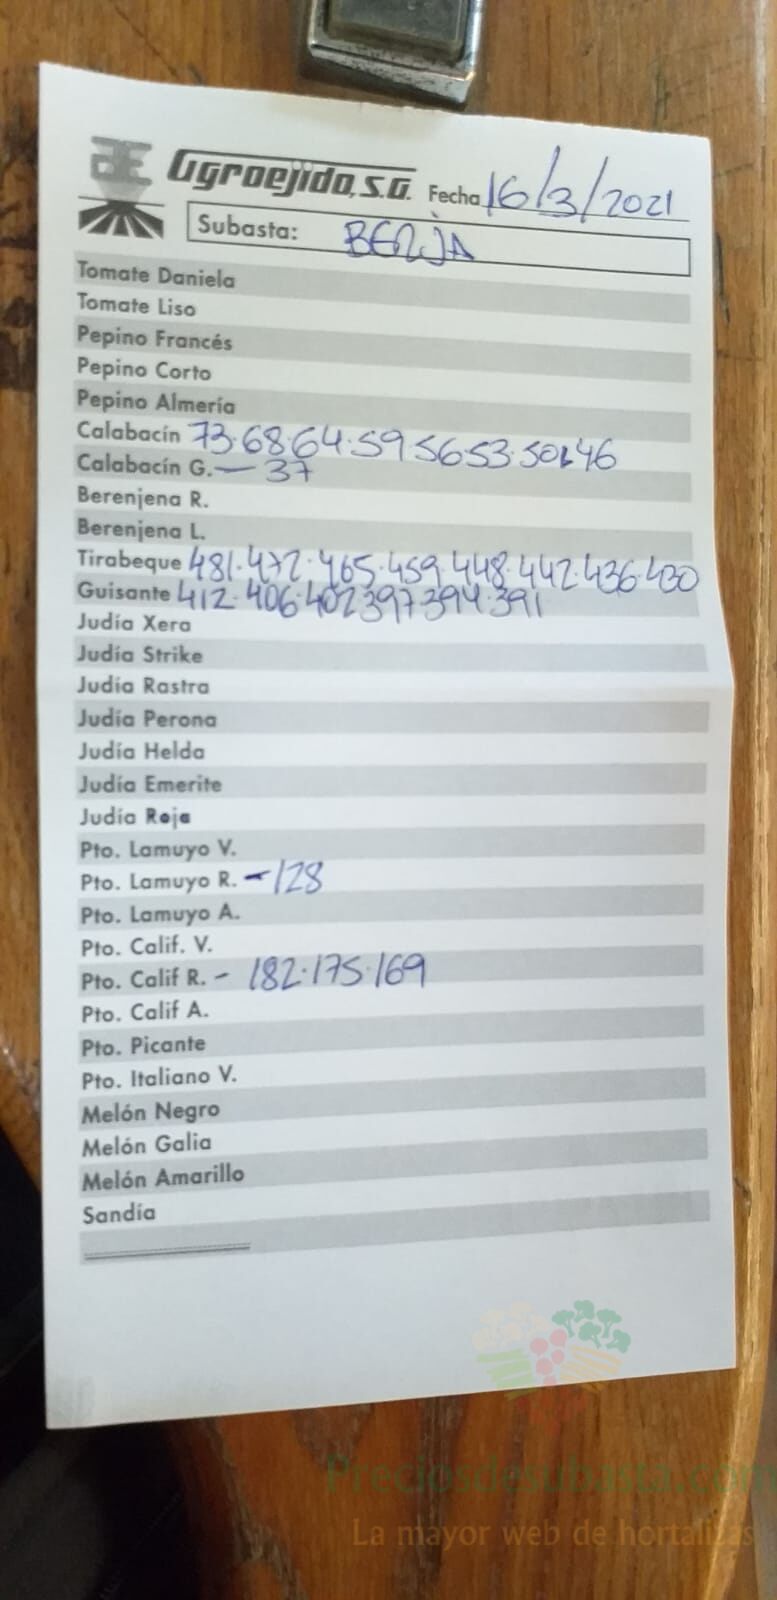 AE Agroejido, S.A. Fecha 16/3/2021
Subasta: BERJA
Tomate Daniela
Tomate Liso
Pepino Francés
Pepino Corto
Pepino Almería
Calabacín 73.68.64.59.56.53.50.46
Calabacín G. — 37
Berenjena R.
Berenjena L.
Tirabeque 481.472.465.459.448.442.436.430
Guisante 412.406.402 397 394.391
Judía Xera
Judía Strike
Judía Rastra
Judía Perona
Judía Helda
Judía Emerite
Judía Roja
Pto. Lamuyo V.
Pto. Lamuyo R. - 128
Pto. Lamuyo A.
Pto. Calif. V.
Pto. Calif R. - 182.175.169
Pto. Calif A.
Pto. Picante
Pto. Italiano V.
Melón Negro
Melón Galia
Melón Amarillo
Sandía
Preciosdesubasta.com
La mayor web de hortalizas